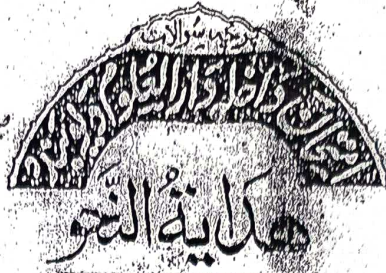 امتحان داخلہ دارالعلوم دیوبند
هداية النَّحو